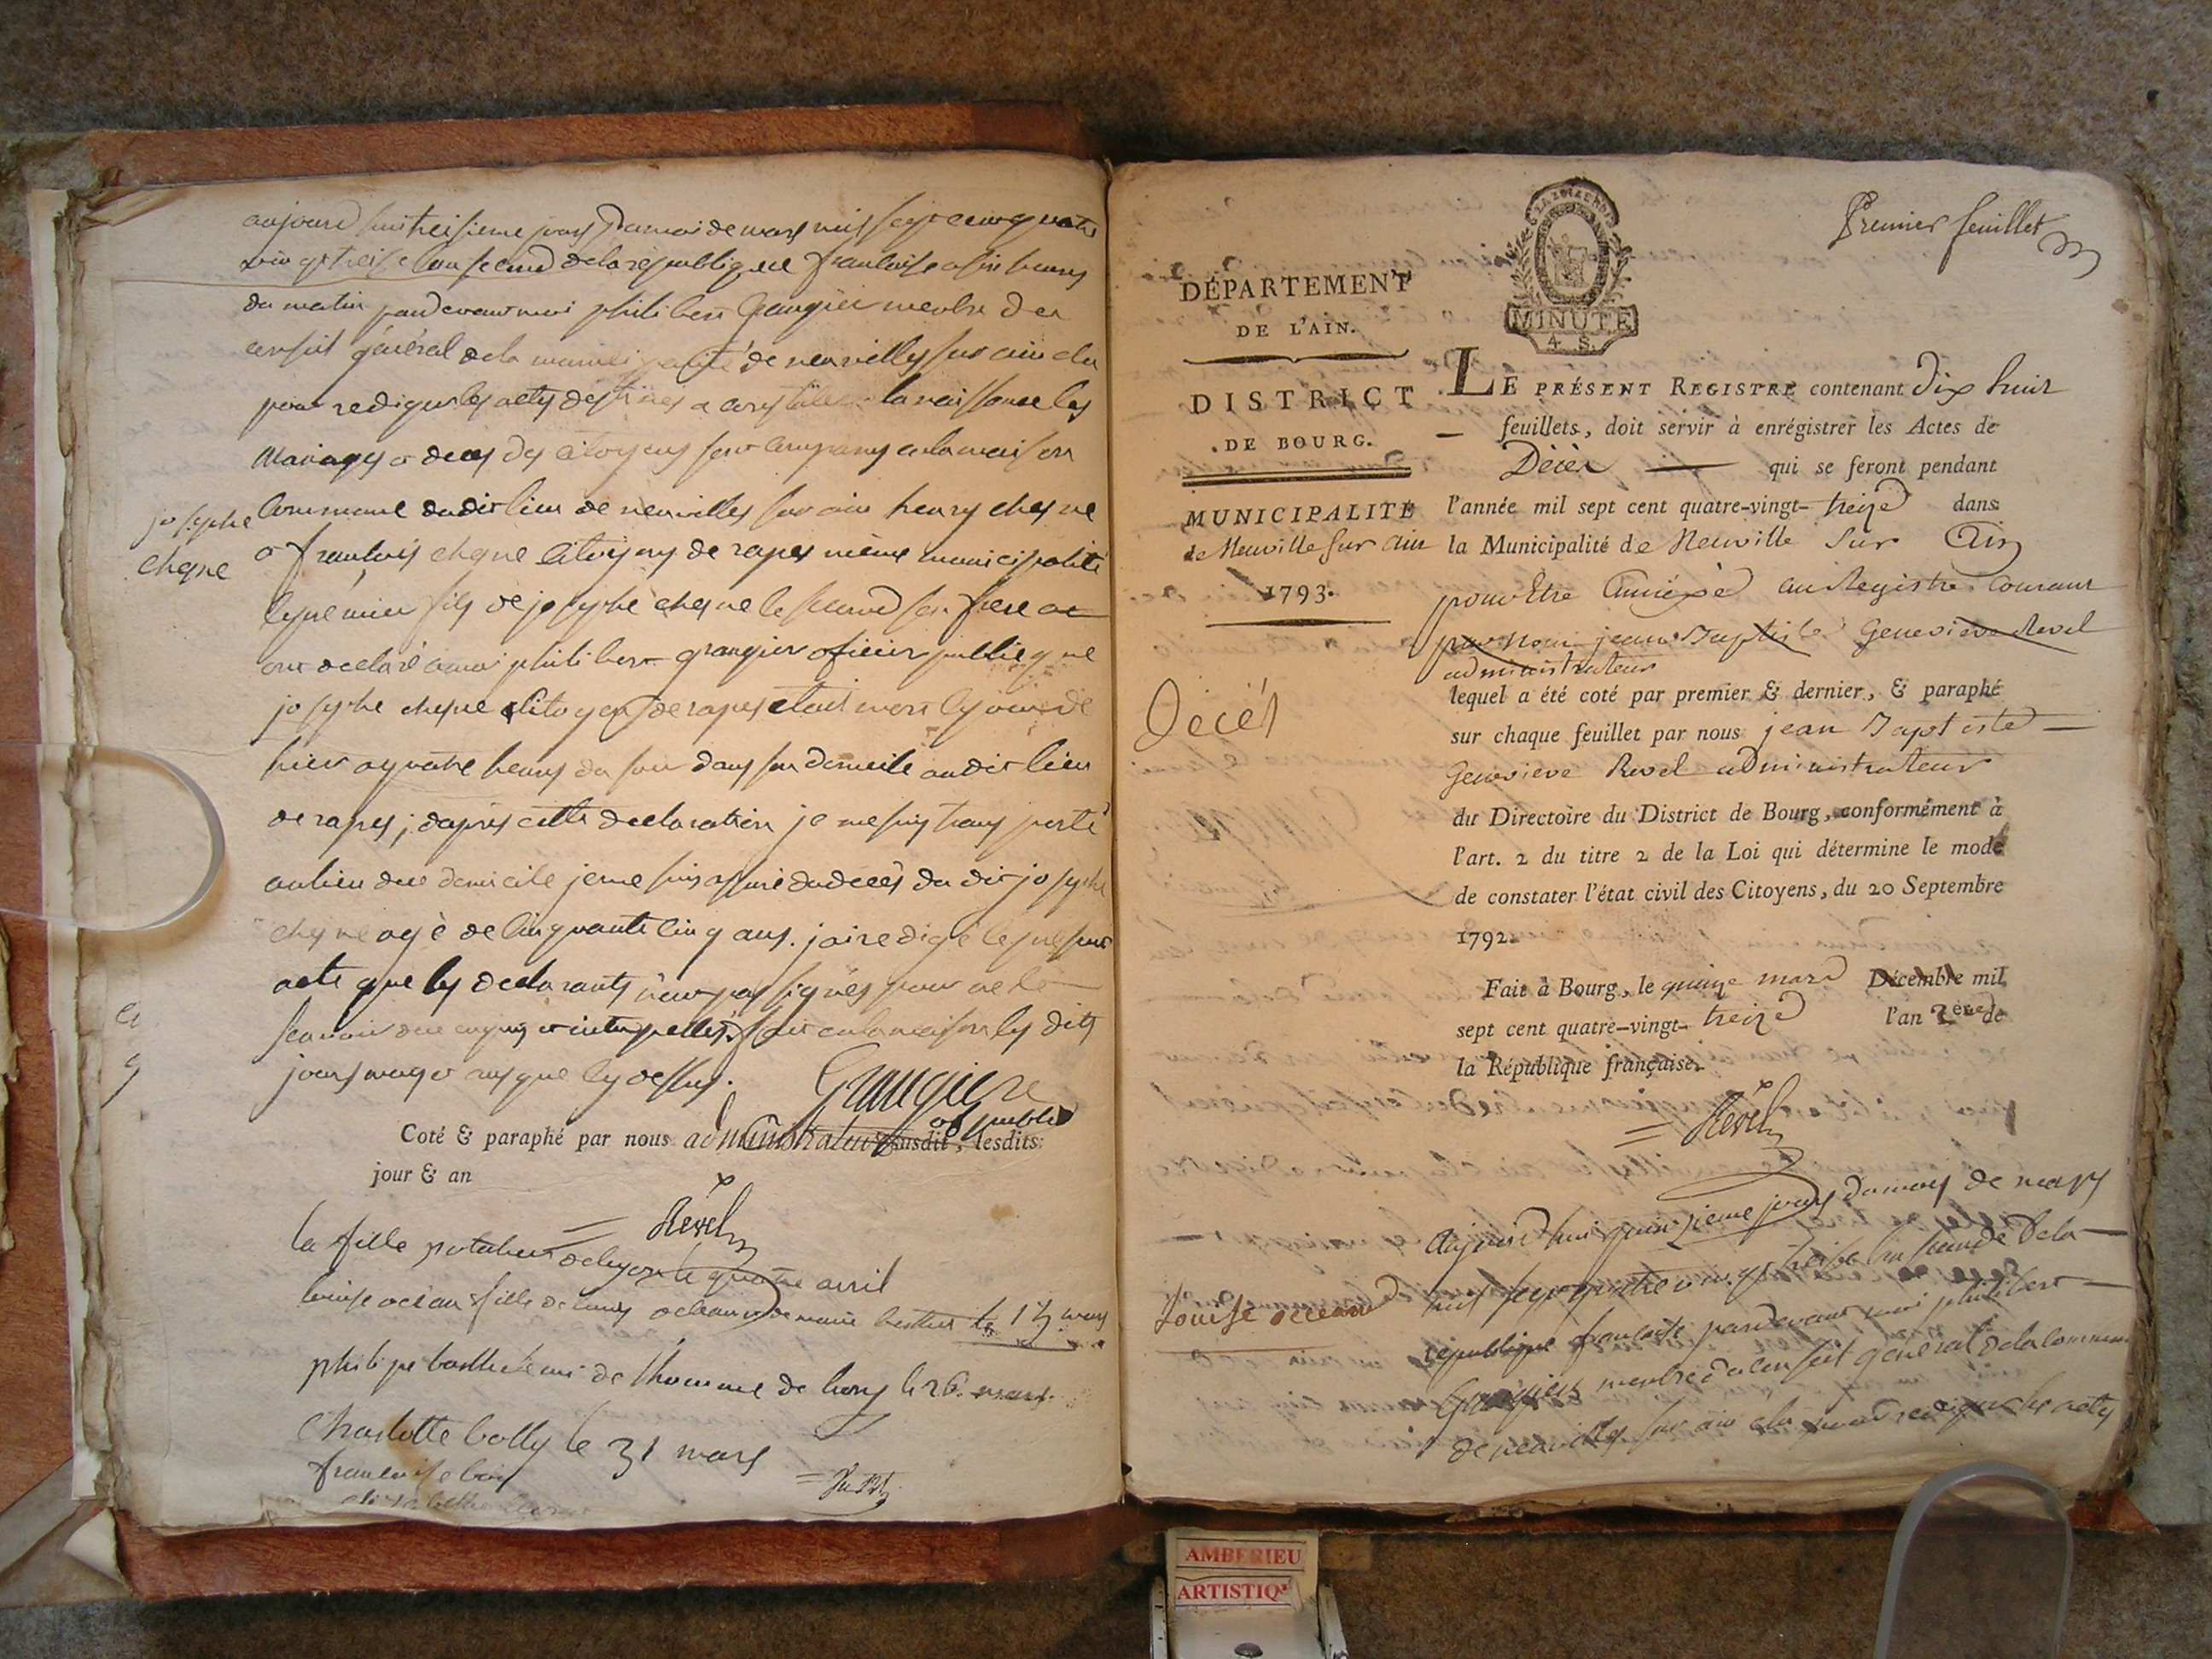 aujourd huit treisieme jours du mois de mars mil sept cent quatre
vingt treise l'an second de la république francoise a six heures
du matin pardevant moi philibert grangier menbre du
conseil général de la municipalité de neuville sur ain elu
pour rediger les actes destinés a constater la naissance les
Mariages et deces des citoyens sont comparus en la maison
josephe
chene
commune dudit lieu de neuville sur ain henry chesne
et francois chene citoyens de rapes même municipalité
le premier fils de josephe chesne le second son frere
ont declaré a moi philibert grangier oficier publique que
josephe chesne citoyen de rapes etait mort le jour de
hier a quatre heures du soir dans son domicile audit lieu
de rapes ; d'apres cette declaration je me suis transporté
au lieu du domicile je me suis assuré du deces du dit josephe
chesne agé de cinquante cinq ans. j'ai redigé le present
acte que les declarants n'ont pas signés pour ne le
scavoir de ce enquis et interpellés fait en la maison les dits
jours mois et ans que cy dessus.
Grangiere
of. public
Coté & paraphé par nous administrateur susdit, lesdits
jour & an
Rével
la fille de lyon le quatre avril
louise océan fille de et de marie le 15 mars
philipe barthelemi de l'homme de lion le 26 mars
Charlotte bolly le 31 mars
francoise
Premier feuillet
LA LOI ET LE ROI
MINUTE
4. S.
DÉPARTEMENT
DE L'AIN.
DISTRICT
DE BOURG.
MUNICIPALITÉ
de Neuville sur ain
1793.
LE PRÉSENT REGISTRE contenant dix huit
feuillets, doit servir à enrégistrer les Actes de
Décès qui se feront pendant
l'année mil sept cent quatre-vingt-treize dans
la Municipalité de Neuville sur Ain
pour Etre Annéxé au Registre Courant
par nous jean Baptiste Genevieve Revel
administrateur
lequel a été coté par premier & dernier, & paraphé
sur chaque feuillet par nous jean Baptiste
Genevieve Revel administrateur
du Directoire du District de Bourg, conformément à
l'art. 2 du titre 2 de la Loi qui détermine le mode
de constater l'état civil des Citoyens, du 20 Septembre
1792.
Fait à Bourg, le quinze mars Décembre mil
sept cent quatre-vingt-treize l'an 2ème de
la République française.
Rével
Décés
Louise oceans
Aujourd'hui quinzieme jours du mois de mars
mil sept quatre vingt treise l'an second de la
république francoise pardevant moi philibert
Grangiers menbre du conseil général de la commune
de neuville sur ain elu pour rediger les actes
AMBERIEU
ARTISTIQ